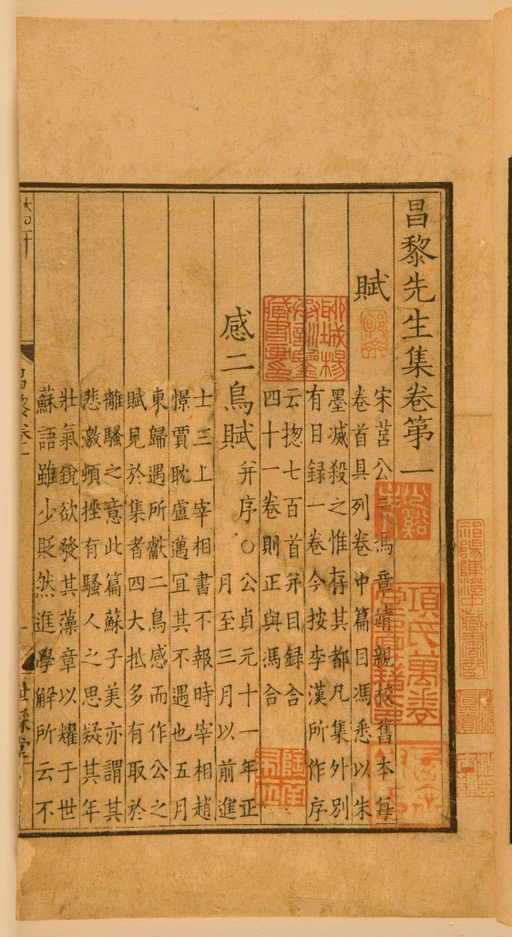 昌黎先生集卷第一
賦
宋莒公云馮章靖親校舊本每
卷首具列卷中篇目馮悉以朱
墨滅殺之惟存其都凡集外別
有目録一卷今按李漢所作序
云揔七百首并目録合
四十一卷則正與馮合
感二鳥賦 并序○公貞元十一年正
月至三月以前進
士三上宰相書不報時宰相趙
憬賈耽盧邁宜其不遇也五月
東歸遇所獻二鳥感而作公之
賦見於集者四大抵多有取於
離騷之意此篇蘇子美亦謂其
悲激頓挫有騷人之思疑其年
壯氣銳欲發其藻章以耀于世
蘇語雖少貶然進學解所云不
昌黎卷一
世綵堂
聊城楊承訓鑒藏書畫印
項氏萬卷堂圖籍印
祁陽陳澄中藏書記